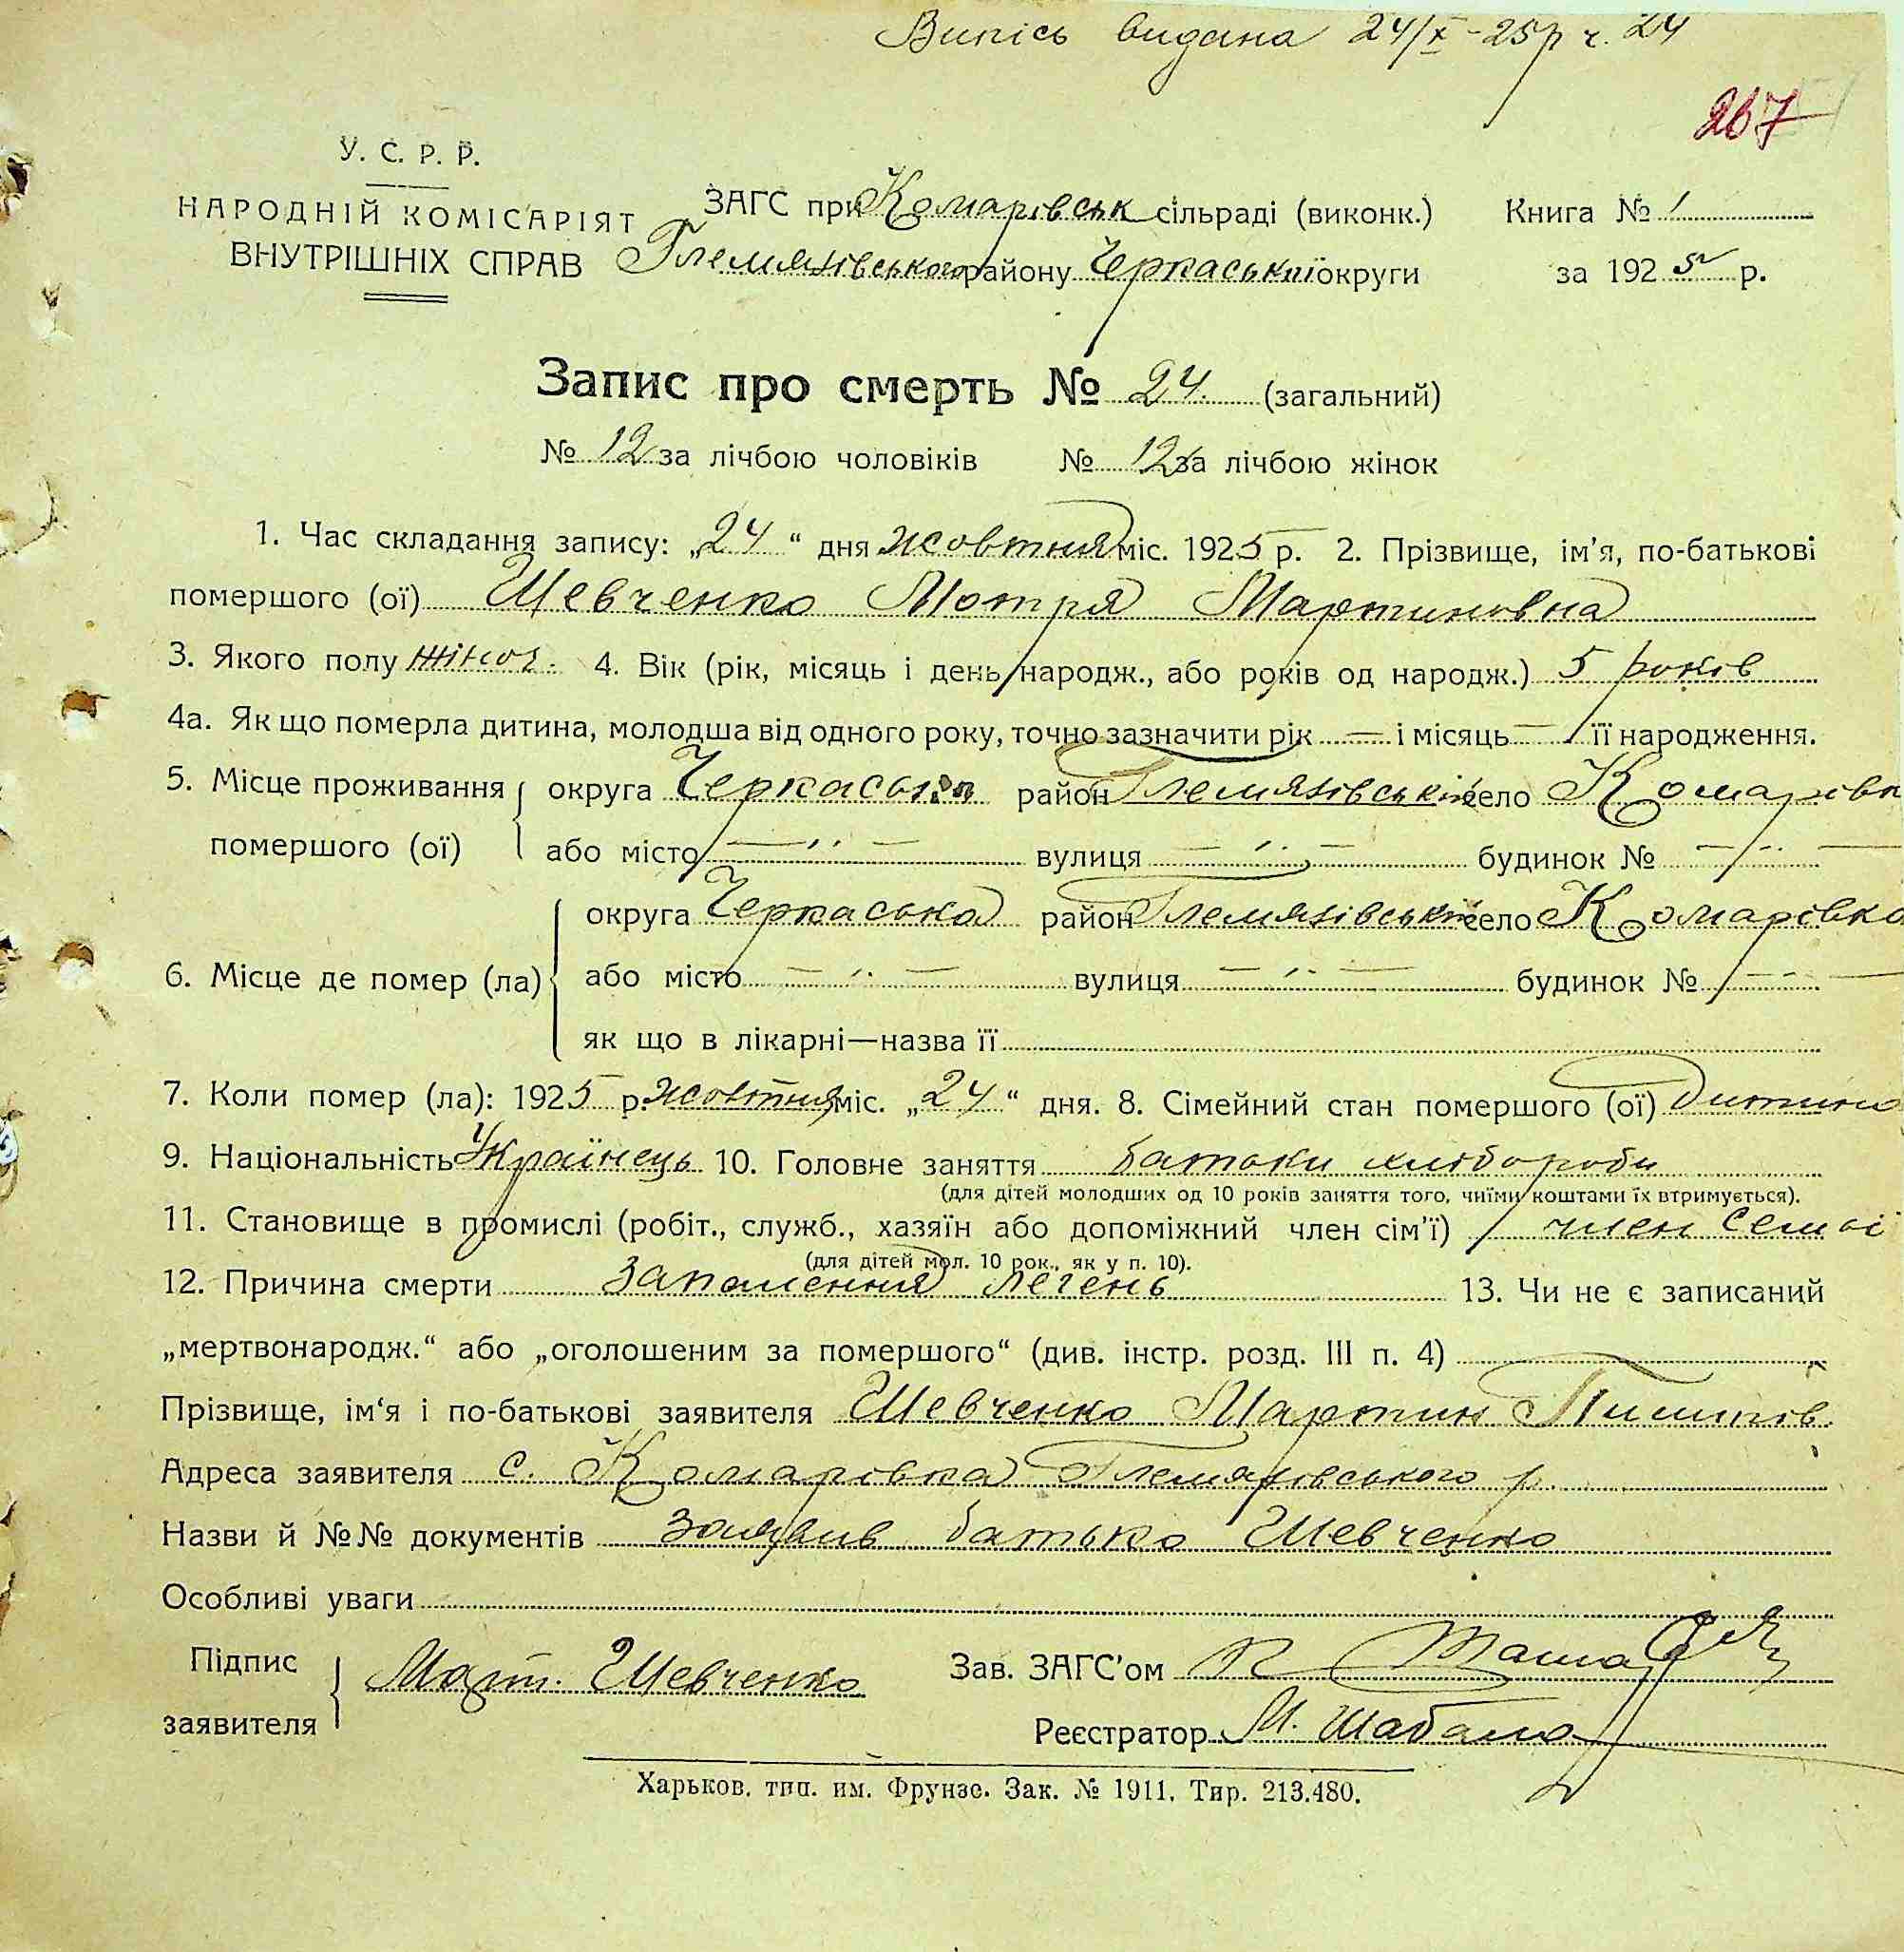 Випісь видана 24/X-25р ч. 24
267
У. С. Р. Р.
НАРОДНІЙ КОМІСАРІЯТ
ВНУТРІШНІХ СПРАВ
ЗАГС при Комарівськ сільраді (виконк.) Книга № 1
Гельмязівського району Черкаської округи за 1925 р.
Запис про смерть № 24. (загальний)
№ 12 за лічбою чоловіків № 12 за лічбою жінок
1. Час складання запису: „24“ дня жовтня міс. 1925 р. 2. Прізвище, ім’я, по-батькові
помершого (ої) Шевченко Мотря Мартиновна
3. Якого полу жіноч. 4. Вік (рік, місяць і день народж., або років од народж.) 5 років
4а. Як що померла дитина, молодша від одного року, точно зазначити рік — і місяць — її народження.
5. Місце проживання помершого (ої) округа Черкаська район Гельмязівський село Комарівка
або місто — „ — вулиця — „ — будинок № — „ —
6. Місце де помер (ла) округа Черкаська район Гельмязівський село Комарівка
або місто — „ — вулиця — „ — будинок № — „ —
як що в лікарні—назва її
7. Коли помер (ла): 1925 р. жовтня міс. „24“ дня. 8. Сімейний стан помершого (ої) Дитина
9. Національність Українець 10. Головне заняття батьки хлібороби
(для дітей молодших од 10 років заняття того, чиїми коштами їх втримується).
11. Становище в промислі (робіт., служб., хазяїн або допоміжний член сім’ї) член семьї
(для дітей мол. 10 рок., як у п. 10).
12. Причина смерти Запалення легень 13. Чи не є записаний
„мертвонародж.“ або „оголошеним за помершого“ (див. інстр. розд. III п. 4)
Прізвище, ім‘я і по-батькові заявителя Шевченко Мартин Пилипів
Адреса заявителя с. Комарівка Гельмязівського р.
Назви й №№ документів заявив батько Шевченко
Особливі уваги
Підпис заявителя Март. Шевченко Зав. ЗАГС’ом
Реєстратор М. Шабало
Харьков. тип. им. Фрунзе. Зак. № 1911. Тир. 213.480.